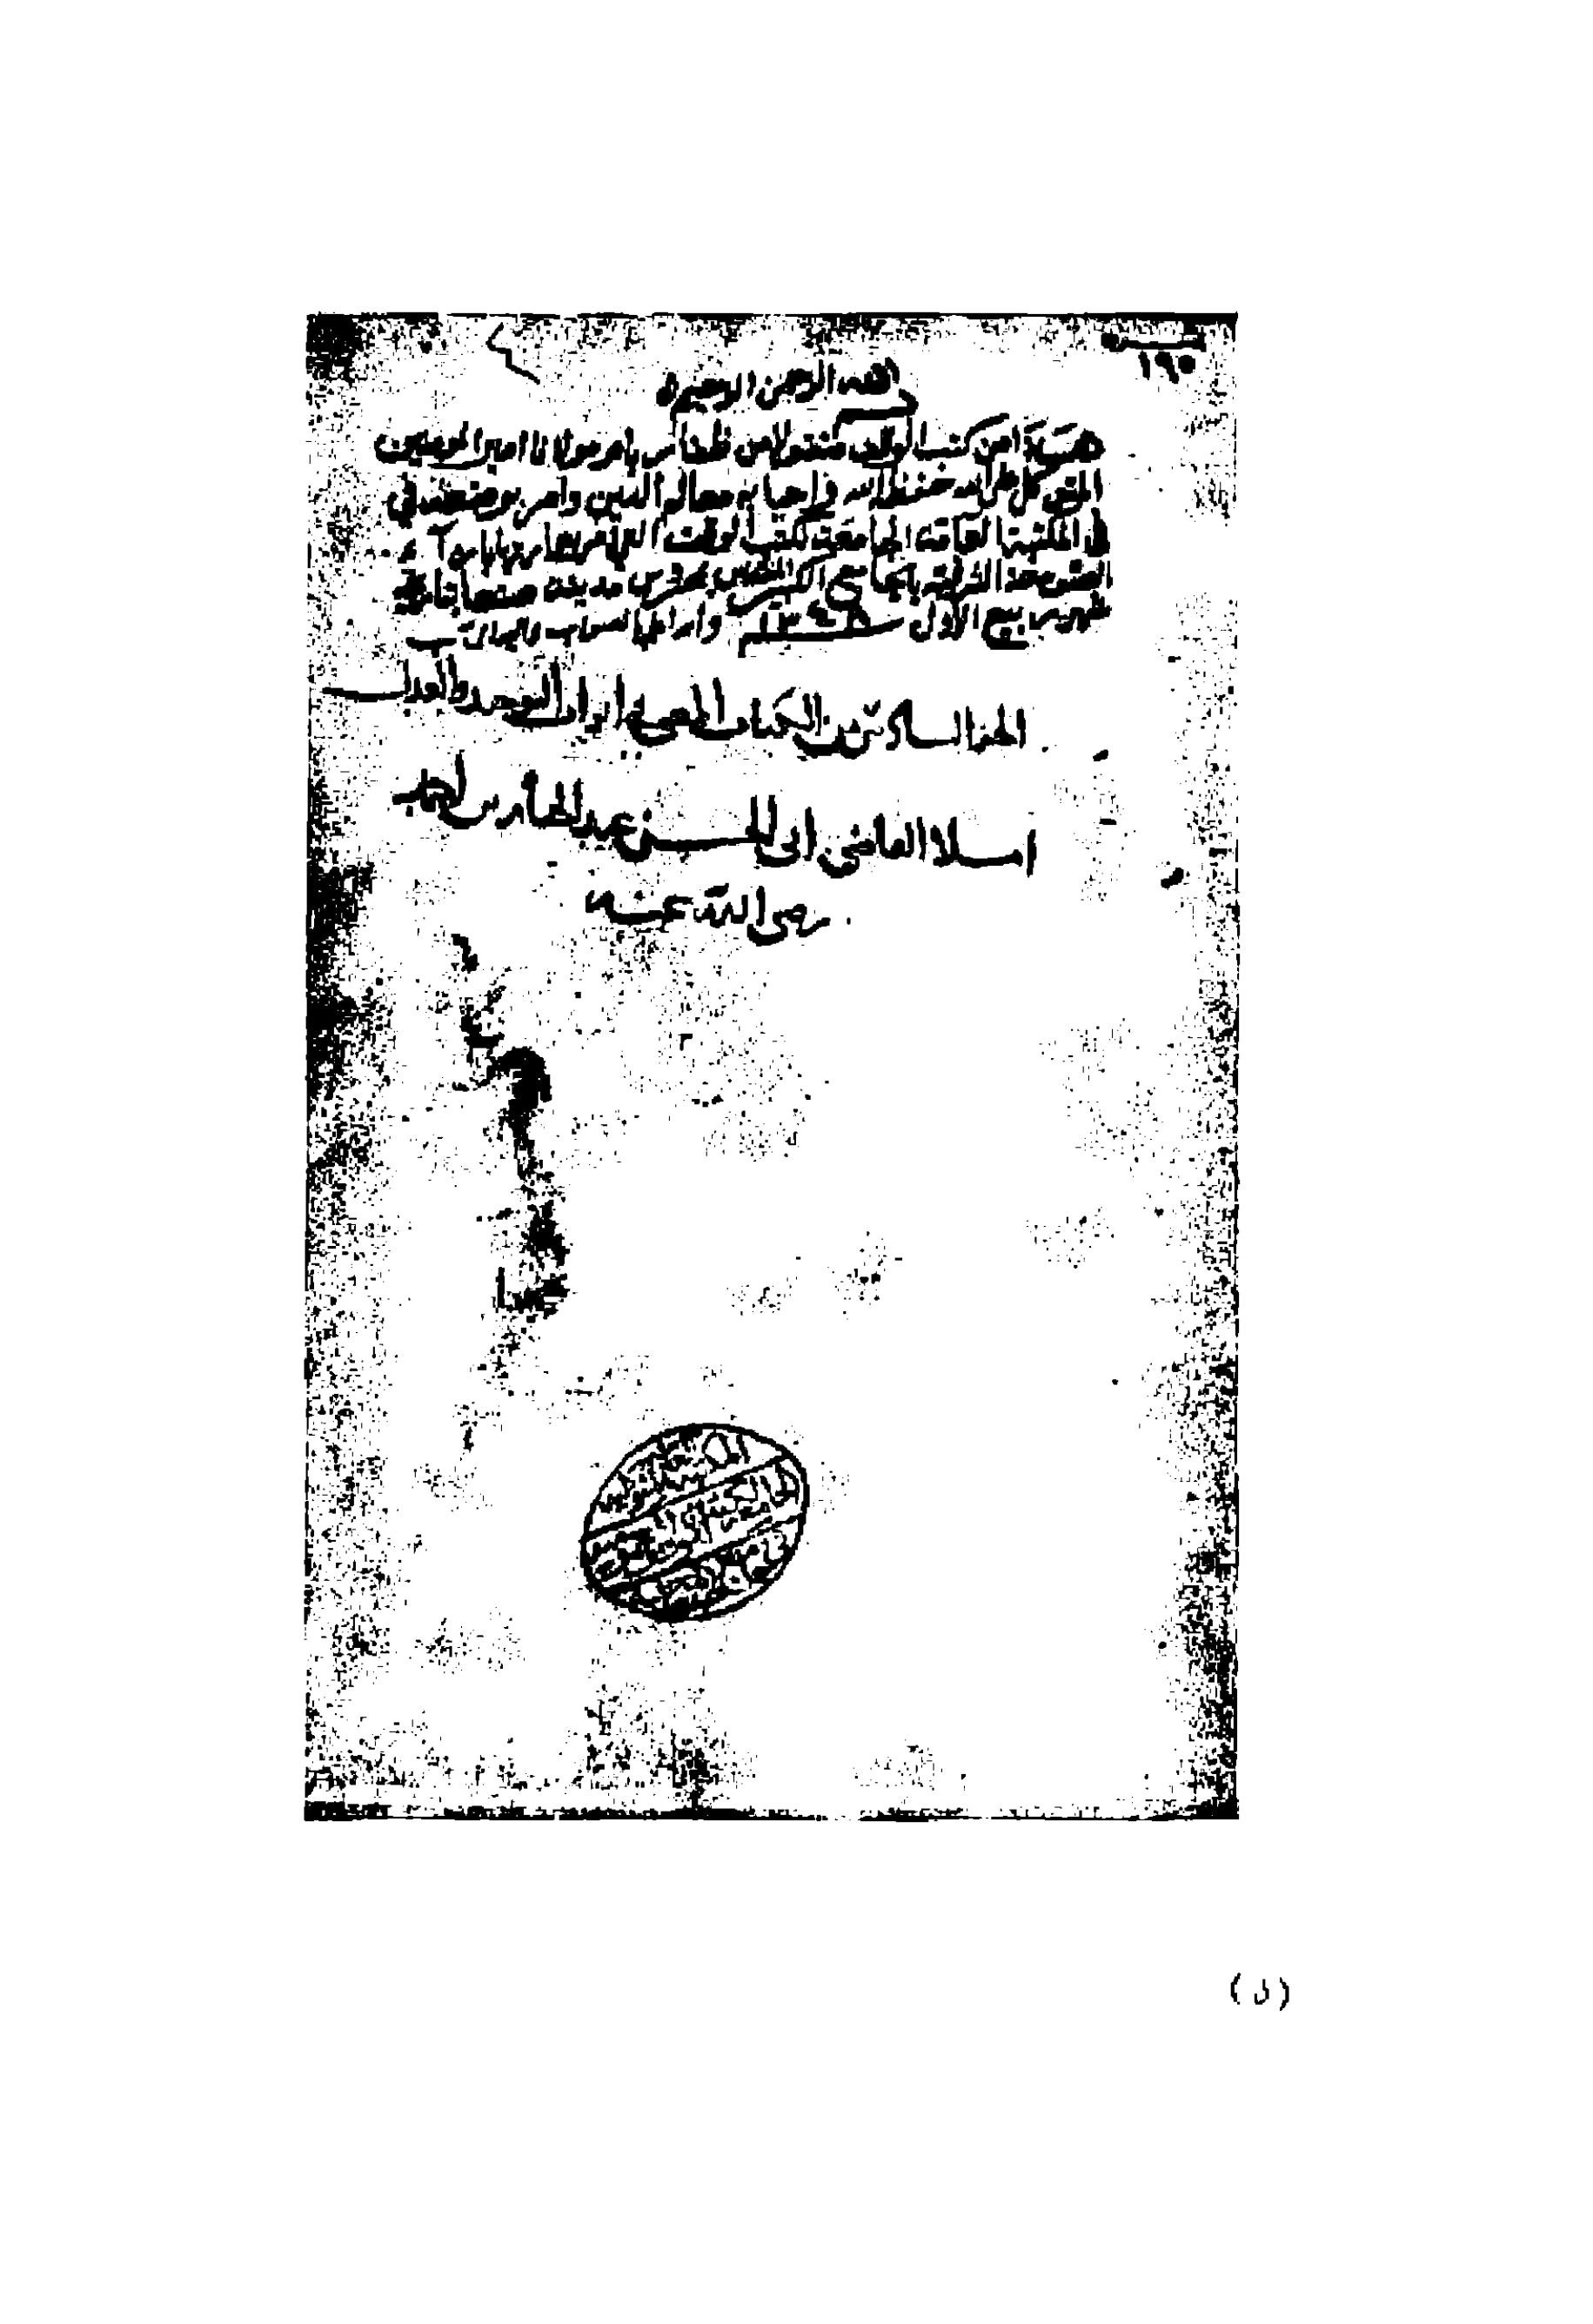 ١٩٥
بسم الله الرحمن الرحيم
هذا من كتب الوقف منقولا من ظفار بامر مولانا امير المؤمنين
المتوكل على الله حفظه الله واحيا به معالم الدين وامر بوضعه في
في المكتبة العامة الجامعة لكتب الوقف التي امر
بالجامع الكبير المقدس بمحروس مدينة صنعا
شهر ربيع الاول سنة ١٣٤٨
الجزء السادس من الكتاب المغني في ابواب التوحيد والعدل
املاء القاضي ابي الحسن عبد الجبار بن احمد
رضي الله عنه
(د)